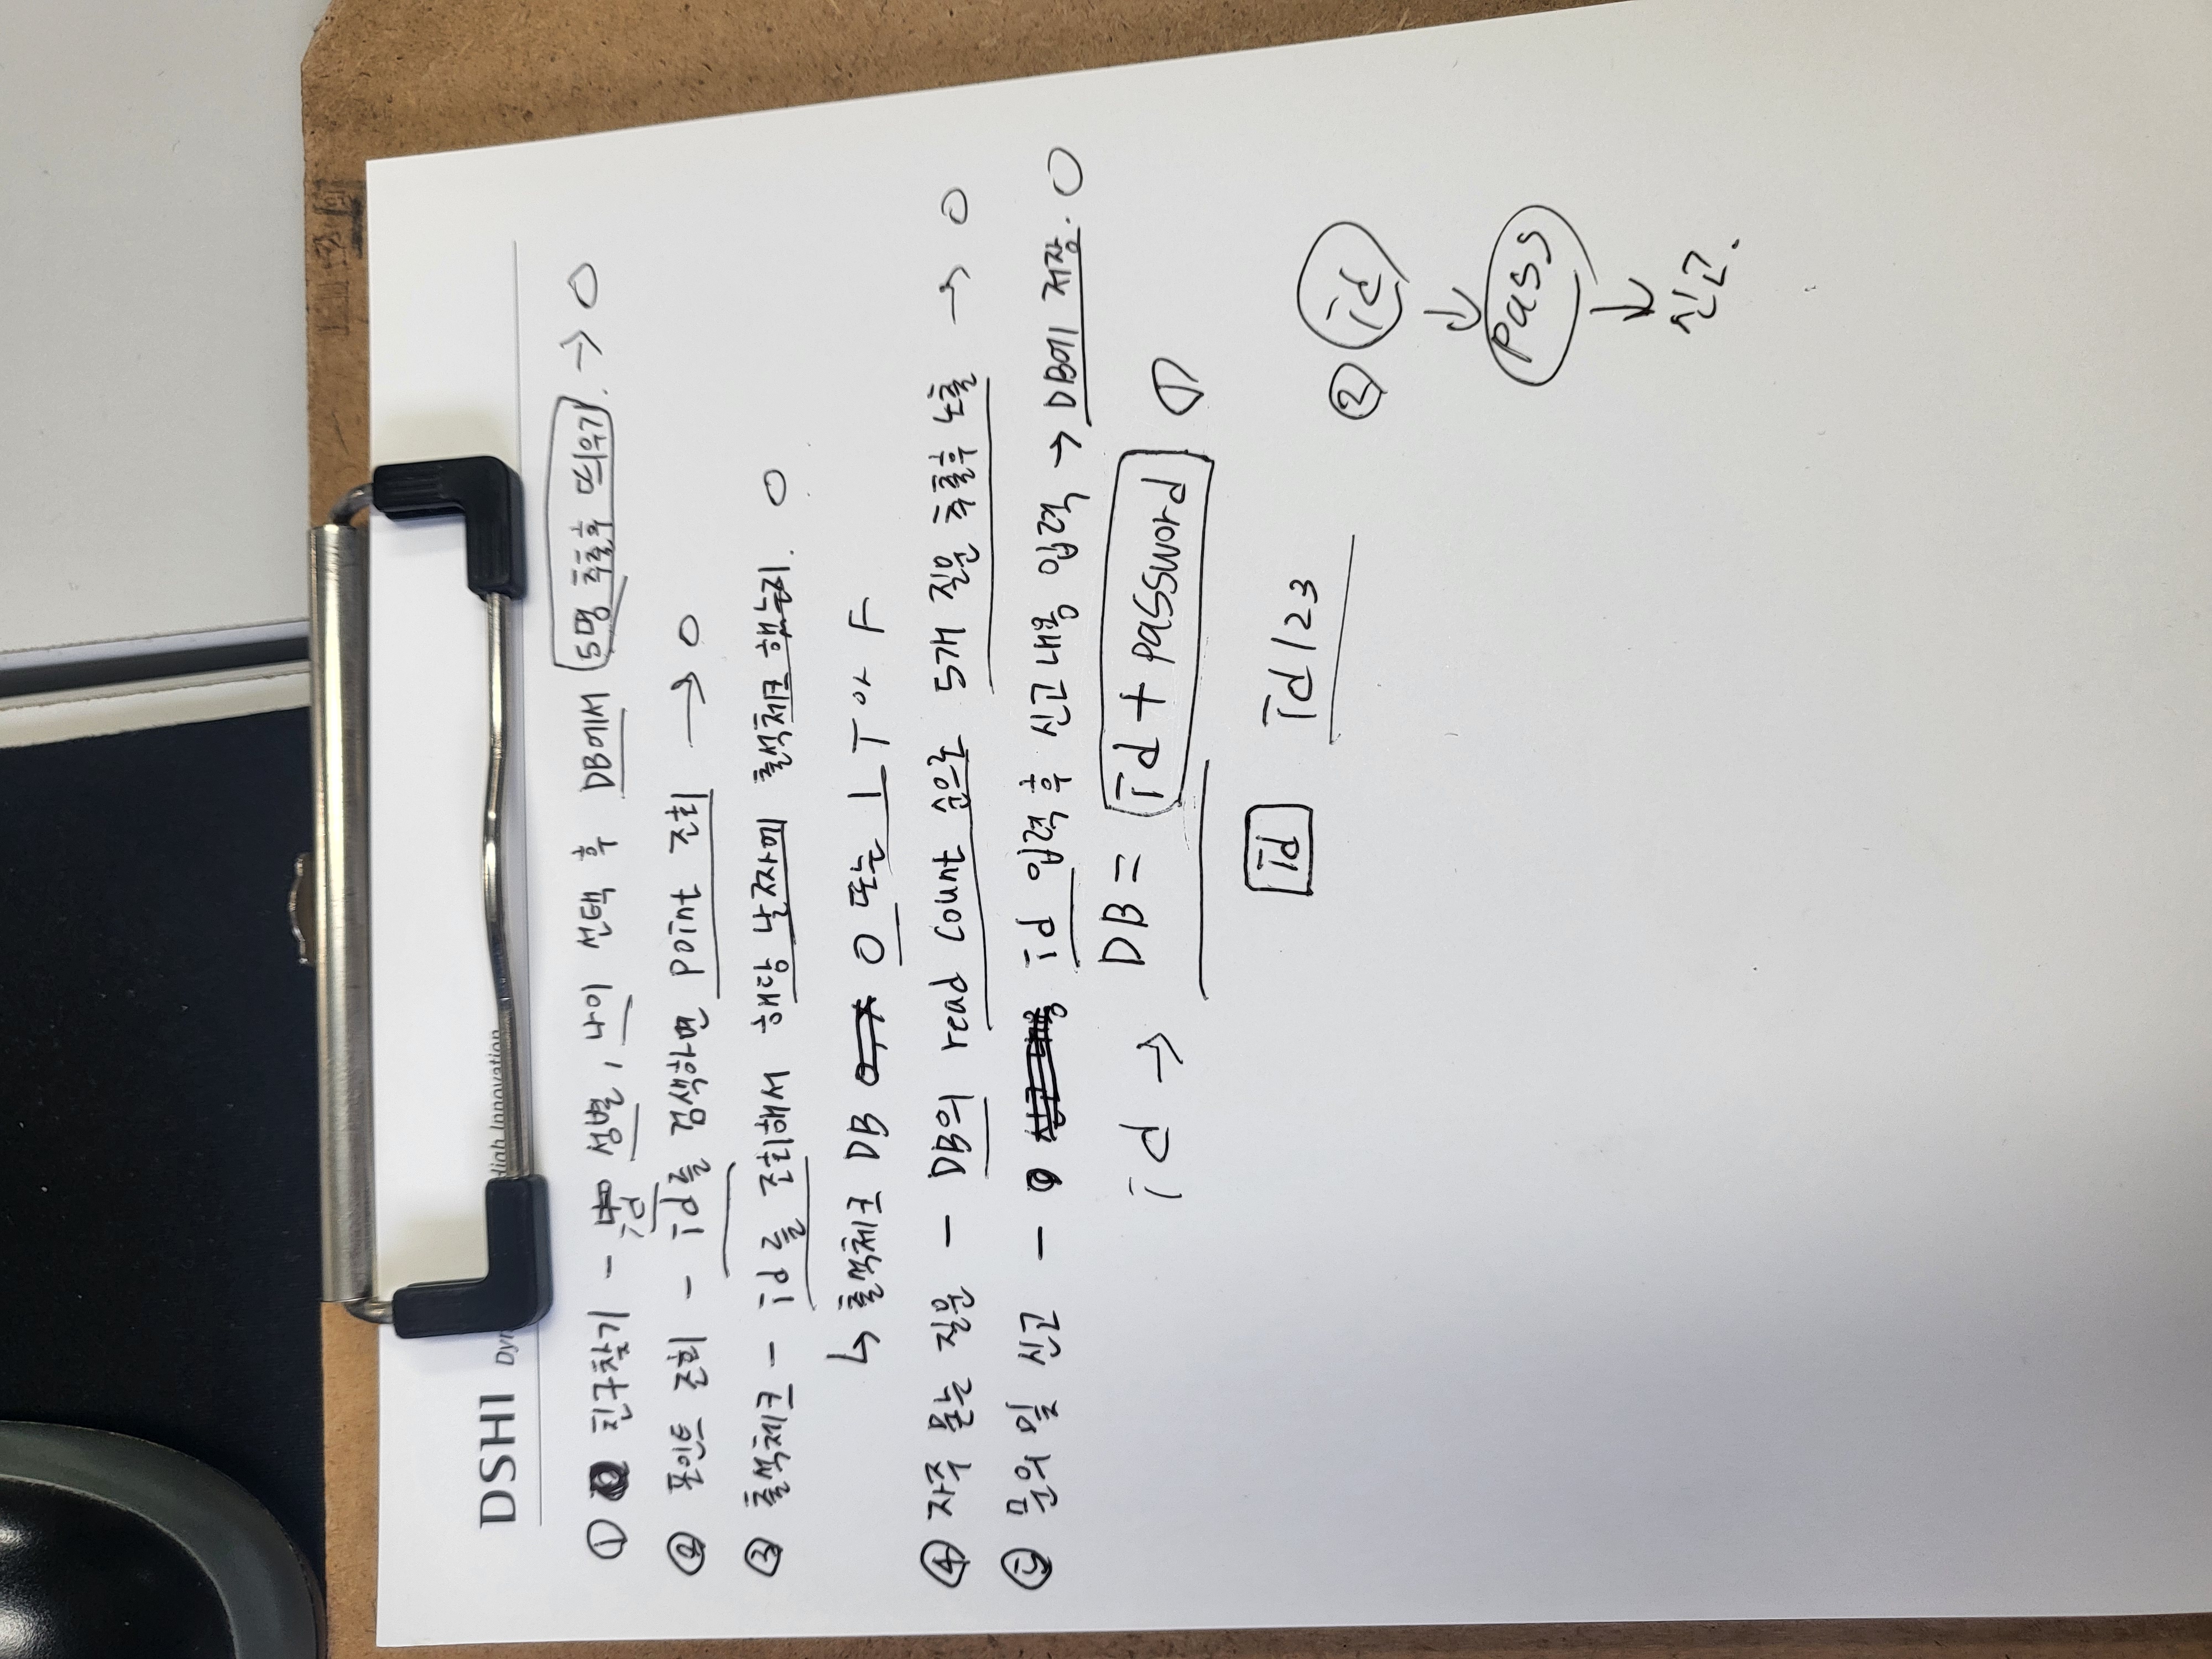 DSHI Dyn High Innovation
① 친구찾기 - 성별, 나이 선택 후 DB에서 5명 추출후 띄우기. → O
id
② 포인트 조회 - id를 검색하면 point 조회 → O
③ 출석체크 - id를 조회해서 해당 날짜에 출석체크 했는지. O
↳ 출석체크 DB O 또는 1 T or F
④ 자주 묻는 질문 - DB의 read count 순으로 5개 질문 추출후 노출 → O
⑤ 문의 및 신고 - id 입력 후 신고 내용 입력 → DB에 저장. O
id → DB = id + password ①
id id123
② id
↓
pass
↓
신고.